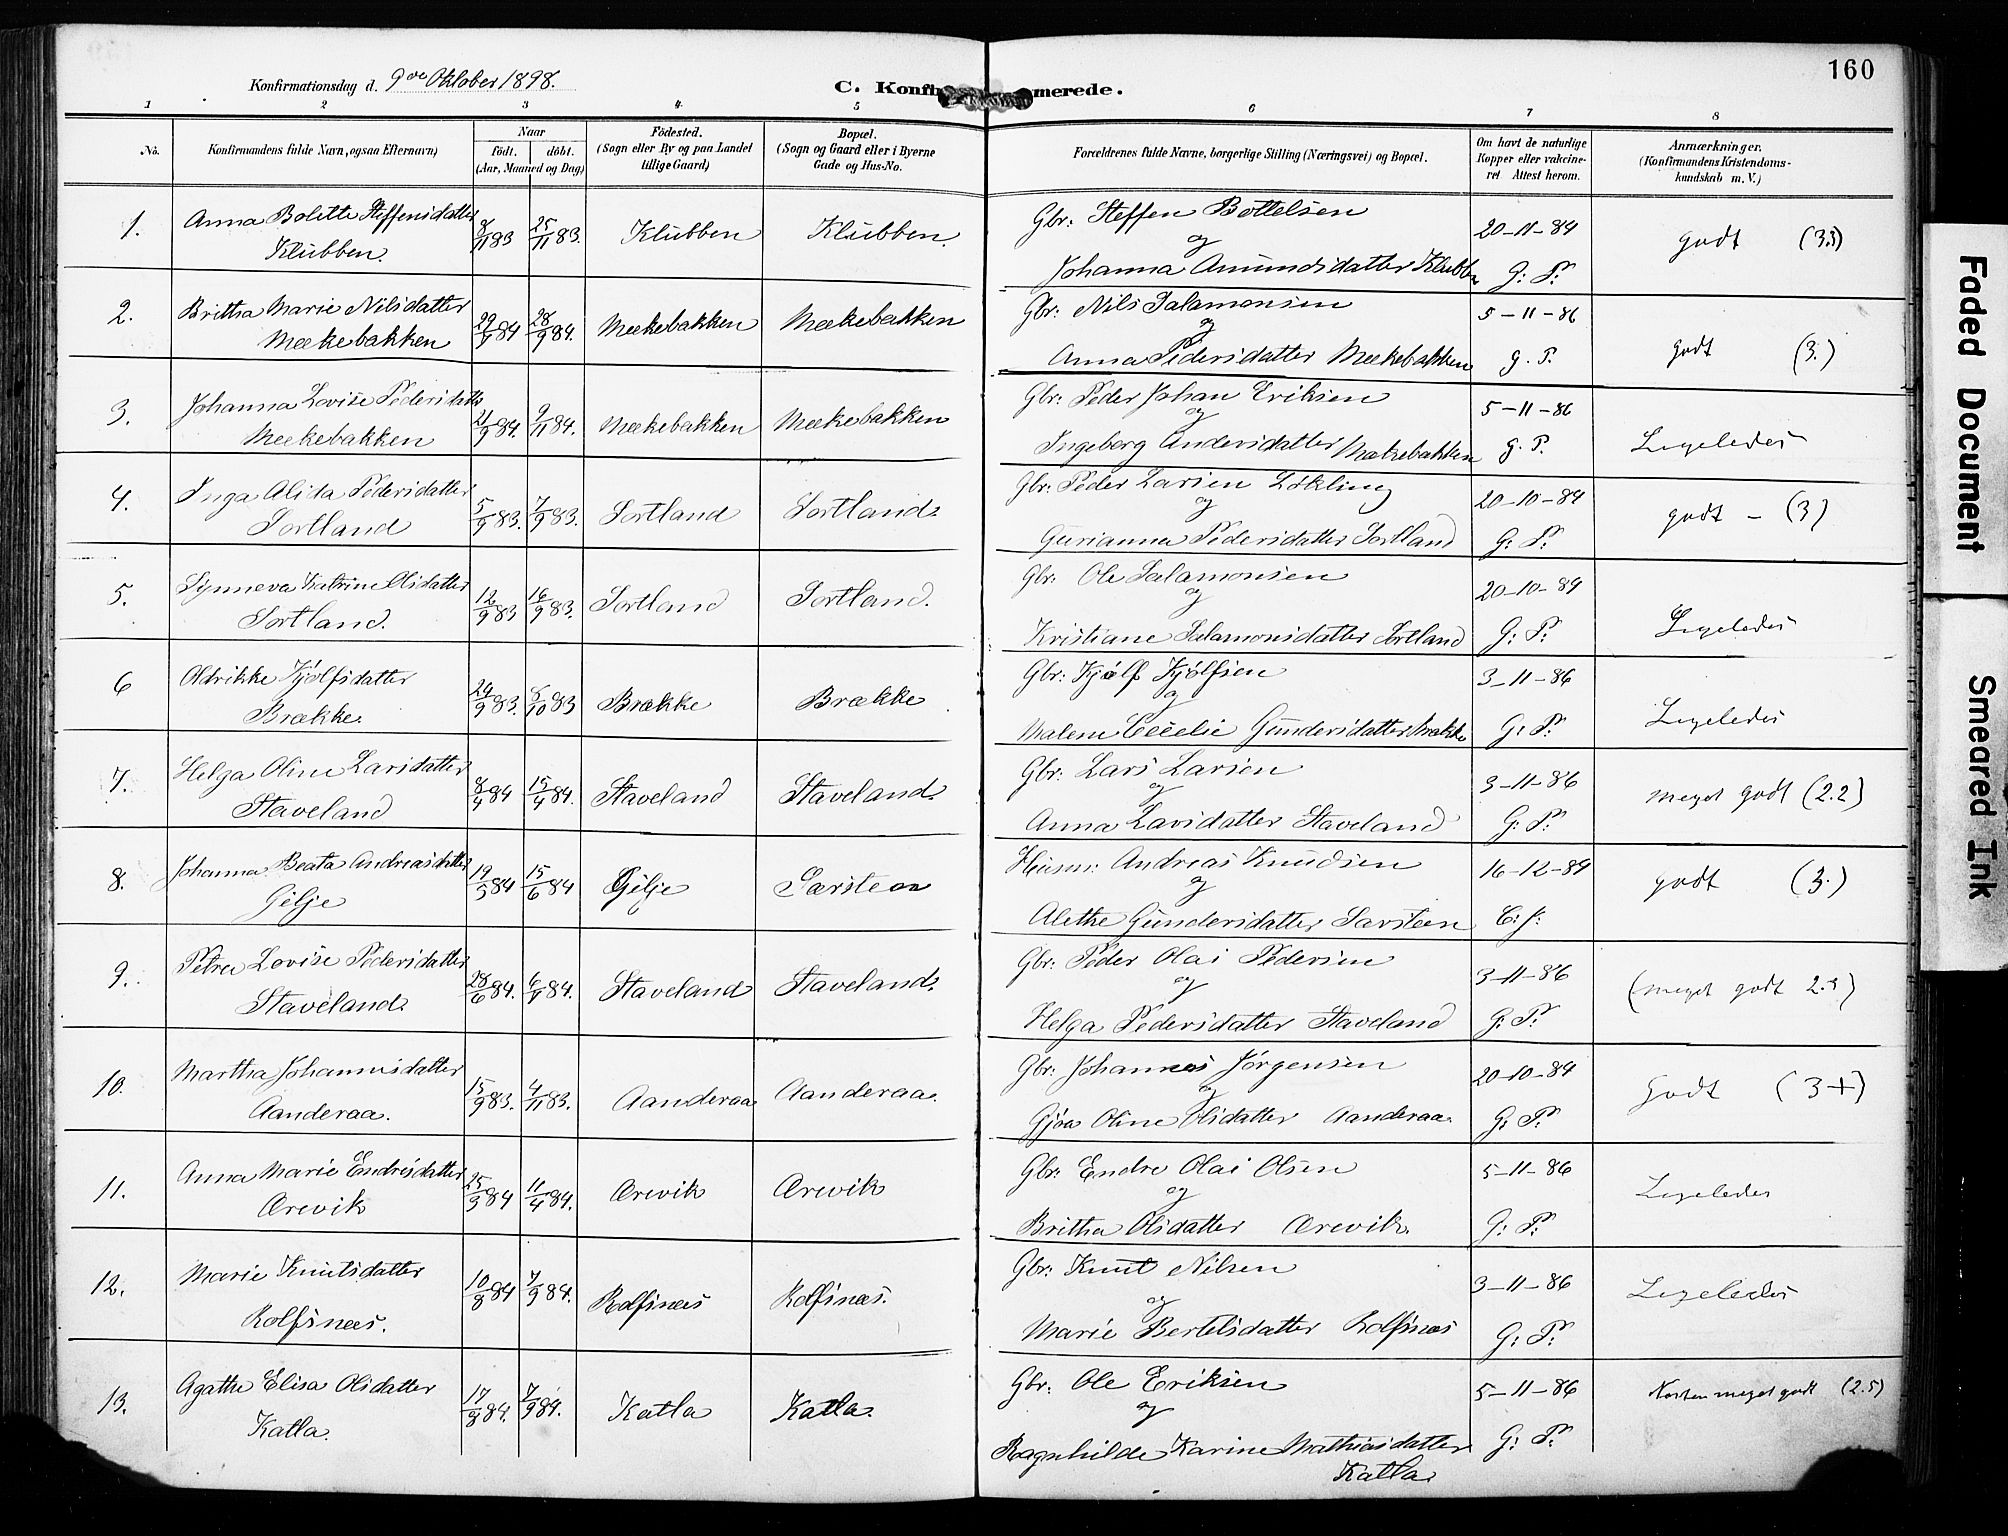 160
Konfirmationsdag d. 9de Oktober 1898.
C. Konfi merede.
1 2 3 4. 5 6 7 8
No.
Konfirmandens fulde Navn, ogsaa Efternavn)
Naar
födt. döbt.
(Aar, Maaned og Dag)
Födested.
(Sogn eller By og paa Landet
tillige Gaard)
Bopæl.
(Sogn og Gaard eller i Byerne
Gade og Hus-No.
Forældrenes fulde Navne, borgerlige Stilling (Næringsvei) og Bopæl.
Om havt de naturlige
Kopper eller vakcine-
ret Attest herom.
Anmærkninger.
(Konfirmandens Kristendoms-
kundskab m. V.)
1. Anna Bolette Steffensdatter
Klubben. 8/11 83 25/11 83. Klubben Klubben.
Gbr: Steffen Bottelsen
og
Johanna Amundsdatter Klubben
20-11-84
G: P:
godt (3.5)
2. Britha Marie Nilsdatter
Mækebakken 84 28/9 84. Mækebakken Mækebakken
Gbr: Nils Salamonsen
og
Anna Pedersdatter Mækebakken
5-11-86
g. P.
godt (3.)
3. Johanna Lovise Pedersdatter
Mækebakken 21/9 84. 9/11 84. Mækebakken Mækebakken
Gbr: Peder Johan Eriksen
og
Ingeborg Andersdatter Mækebakken
5-11-86
g. P.
Ligeledes
4. Inga Alida Pedersdatter
Sortland 5/9 83. 7/9 83. Sortland Sortland.
Gbr: Peder Larsen Lökling
og
Gurianna Pedersdatter Sortland
20-10-84
G: P:
godt - (3)
5. Synneva Katrine Olsdatter
Sortland. 12/9 83 16/9 83. Sortland Sortland.
Gbr: Ole Salamonsen
og
Kristiane Salamonsdatter Sortland
20-10-84
G: P:
Ligeledes
6 Oldrikke Kjölfsdatter
Brække. 29/9 83. 83 Brække Brække
Gbr: Kjölf Kjölfsen
og
Malene Cecelie Gundersdatter Brække
3-11-86
G: P:
Ligeledes
7. Helga Oline Larsdatter
Staveland 8/4 84 15/4 84. Staveland Staveland.
Gbr: Lars Larsen
og
Anna Larsdatter Staveland
3-11-86
G: P:
meget godt (2.2)
8. Johanna Beata Andreasdatter
Gilje 19/5 84 15/6 84 Gilje Sarsteen
Husm: Andreas Knudsen
og
Alethe Gundersdatter Sarsteen
16-12-84
C: J:
godt (3.)
9. Petra Lovise Pedersdatter
Staveland. 28/6 84. 84. Staveland Staveland.
Gbr: Peder Olai Pedersen
og
Helga Pedersdatter Staveland
3-11-86
G: P:
(meget godt 2.3)
10. Martha Johannisdatter
Aanderaa. 15/9 83. 4/11 83. Aanderaa Aanderaa.
Gbr: Johannes Jörgensen
og
Gjöa Oline Olsdatter Aanderaa.
20-10-84
G: P:
Godt (3+)
11. Anna Marie Endresdatter
Ørevik 25/3 84 11/4 84. Ørevik Ørevik
Gbr: Endre Olai Olsen
og
Britha Olsdatter Ørevik.
5-11-86
G: P:
Ligeledes
12. Marie Knutsdatter
Rolfsnæs. 10/8 84 7/9 84. Rolfsnæs Rolfsnæs.
Gbr: Knut Nilsen
og
Marie Bertelsdatter Rolfsnæs
3-11-86
G: P:
Ligeledes
13. Agathe Elisa Olsdatter
Katla. 17/8 84. 7/9 84. Katla Katla.
Gbr: Ole Eriksen
og
Ragnhilde Karine Mathiasdatter
Katla.
5-11-86
G: P:
Næsten meget godt (2.5)
Faded Document
Smeared Ink